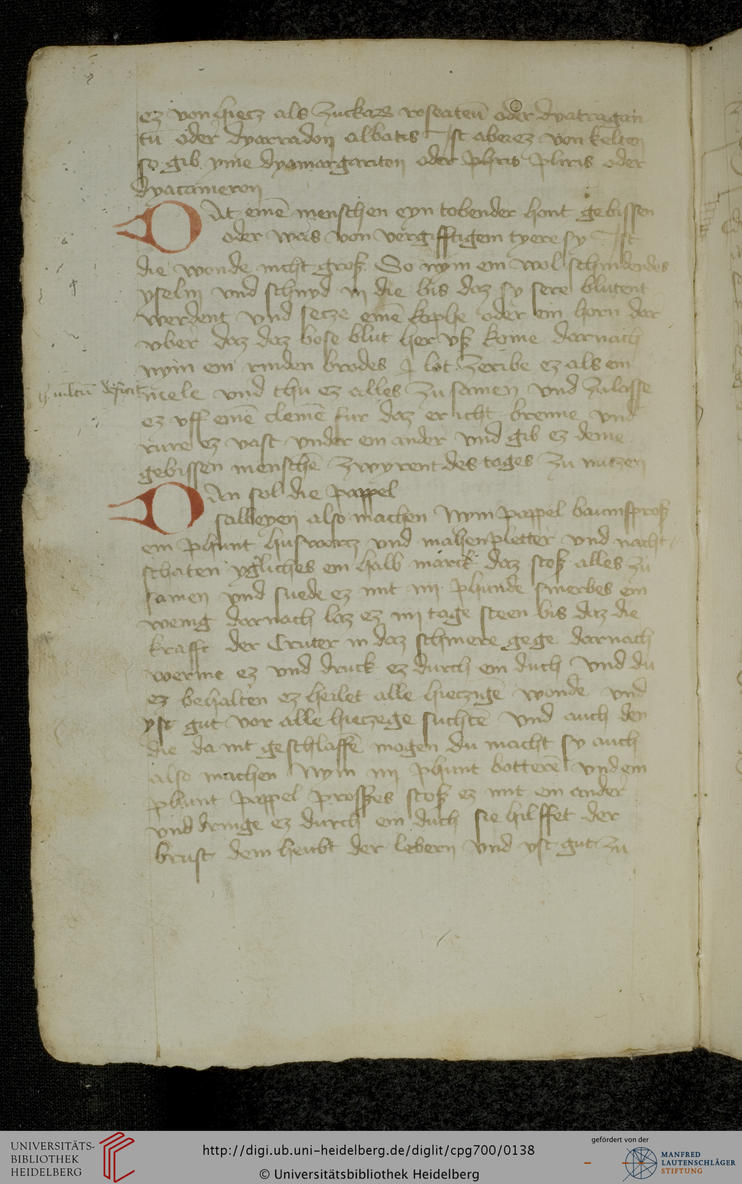 ez von hiecz als zuckarꝫ roseatenū oder dyatragan
tū oder dyarradon albatis Ist aber ez von kelten
so gib yme dyamargariton oder phris pliris oder
dyacameron
Hat einē menschen eyn tobender hont gebissen
oder was von vergifftigem tyere sy Ist
die wonde nicht groß So nym ein wol schnidendes
yseln vnd schnyd in die bis daz sy sere blutent
werdent vnd secze eine kophe oder ein horn dar
vber daz daz bose blut her vß kome darnach
nym ein rinden brodes lot zeribe ez als ein
mele vnd thu ez alles zu samen vnd zulasse
ez vff einē clemē fur daz er icht brenne vnd
rure ez vast vnder ein ander vnd gib ez deme
gebissen menschē zwyrent des tages zu nutzen
Man sol die pappel
salbeyen also machen Nym pappel baumsproß
ein phunt huswurcz vnd mahenpletter vnd nacht
schaten ygliches ein halb marck daz stoß alles zu
samen vnd suede ez mit iiii phunde smerbes ein
wenig darnach loz ez iiii tage steen bis daz die
krafft der Cruter in daz schmere gege darnach
werme ez vnd druck ez durch ein duch vnd du
ez behalten ez heilet alle hieczige wonde vnd
yst gut vor alle hieczege suchtē vnd auch den
die da nit geschlaffē mogen du macht sy auch
also machen Nym iiii phunt botterē vnd ein
phunt pappel prosses stoß ez mit ein ander
vnd dringe ez durch ein duch sie hilffet der
brust dem heubt der lebern vnd yst gut zu
UNIVERSITÄTS-
BIBLIOTHEK
HEIDELBERG
http://digi.ub.uni-heidelberg.de/diglit/cpg700/0138
© Universitätsbibliothek Heidelberg
gefördert von der
MANFRED
LAUTENSCHLÄGER
STIFTUNG